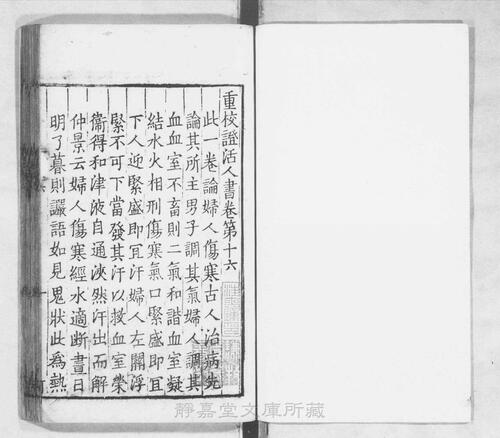 重校證活人書卷第十六
此一卷論婦人傷寒古人治病先
論其所主男子調其氣婦人調其
血血室不畜則二氣和諧血室凝
結水火相刑傷寒氣口緊盛即宜
下人迎緊盛即宜汗婦人左關浮
緊不可下當發其汗以救血室榮
衛得和津液自通浹然汗出而解
仲景云婦人傷寒經水適斷晝日
明了暮則讝語如見鬼狀此為熱
靜嘉堂文庫所藏